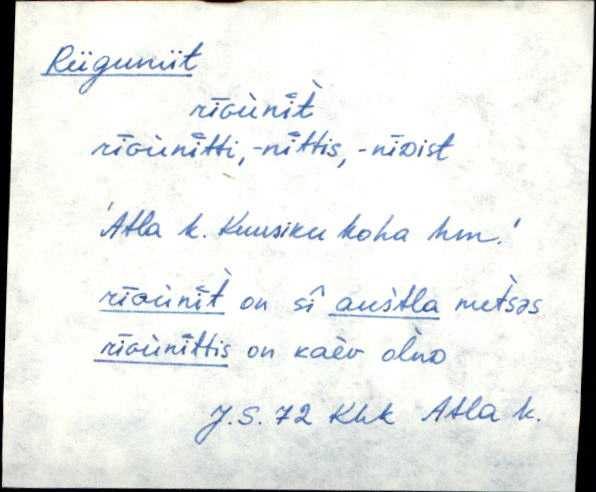 Riiguniit
rīɢùnī̆t̀
rīɢùnī̆tti, -nī̆ttis, -nīᴅist
'Atla k. Kuusiku koha hm.'
rīɢùnī̆t̀ on sī̂ aùstla met̀səs
rīɢùnī̆ttis on kaèv olno
J.S. 72 Khk Atla k.